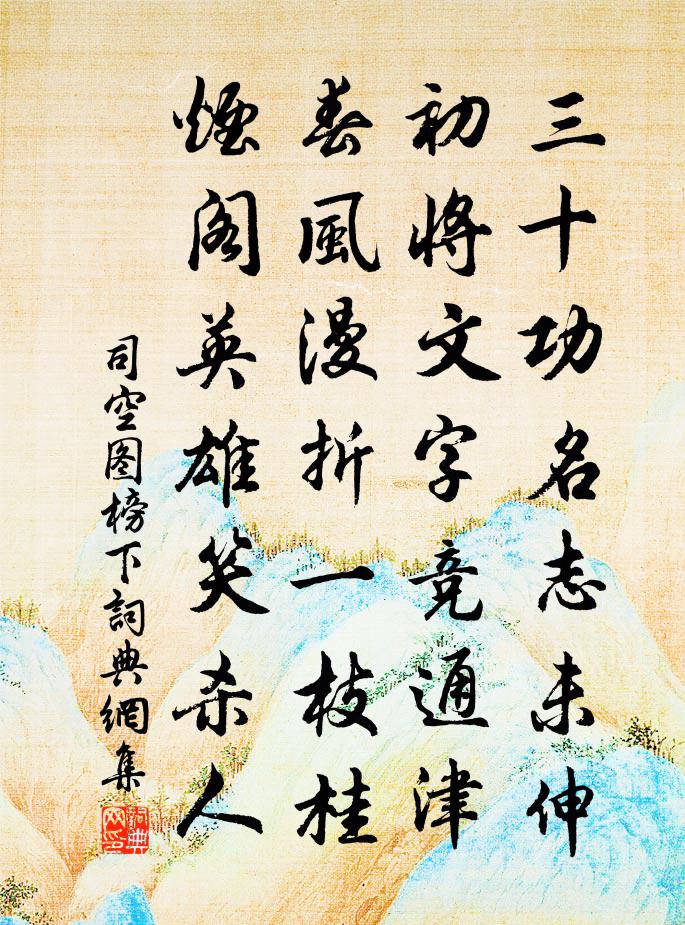 三十功名志未伸
初將文字竞通津
春風漫折一枝桂
煙閣英雄笑杀人
司空图榜下詞典網集
詞典网印